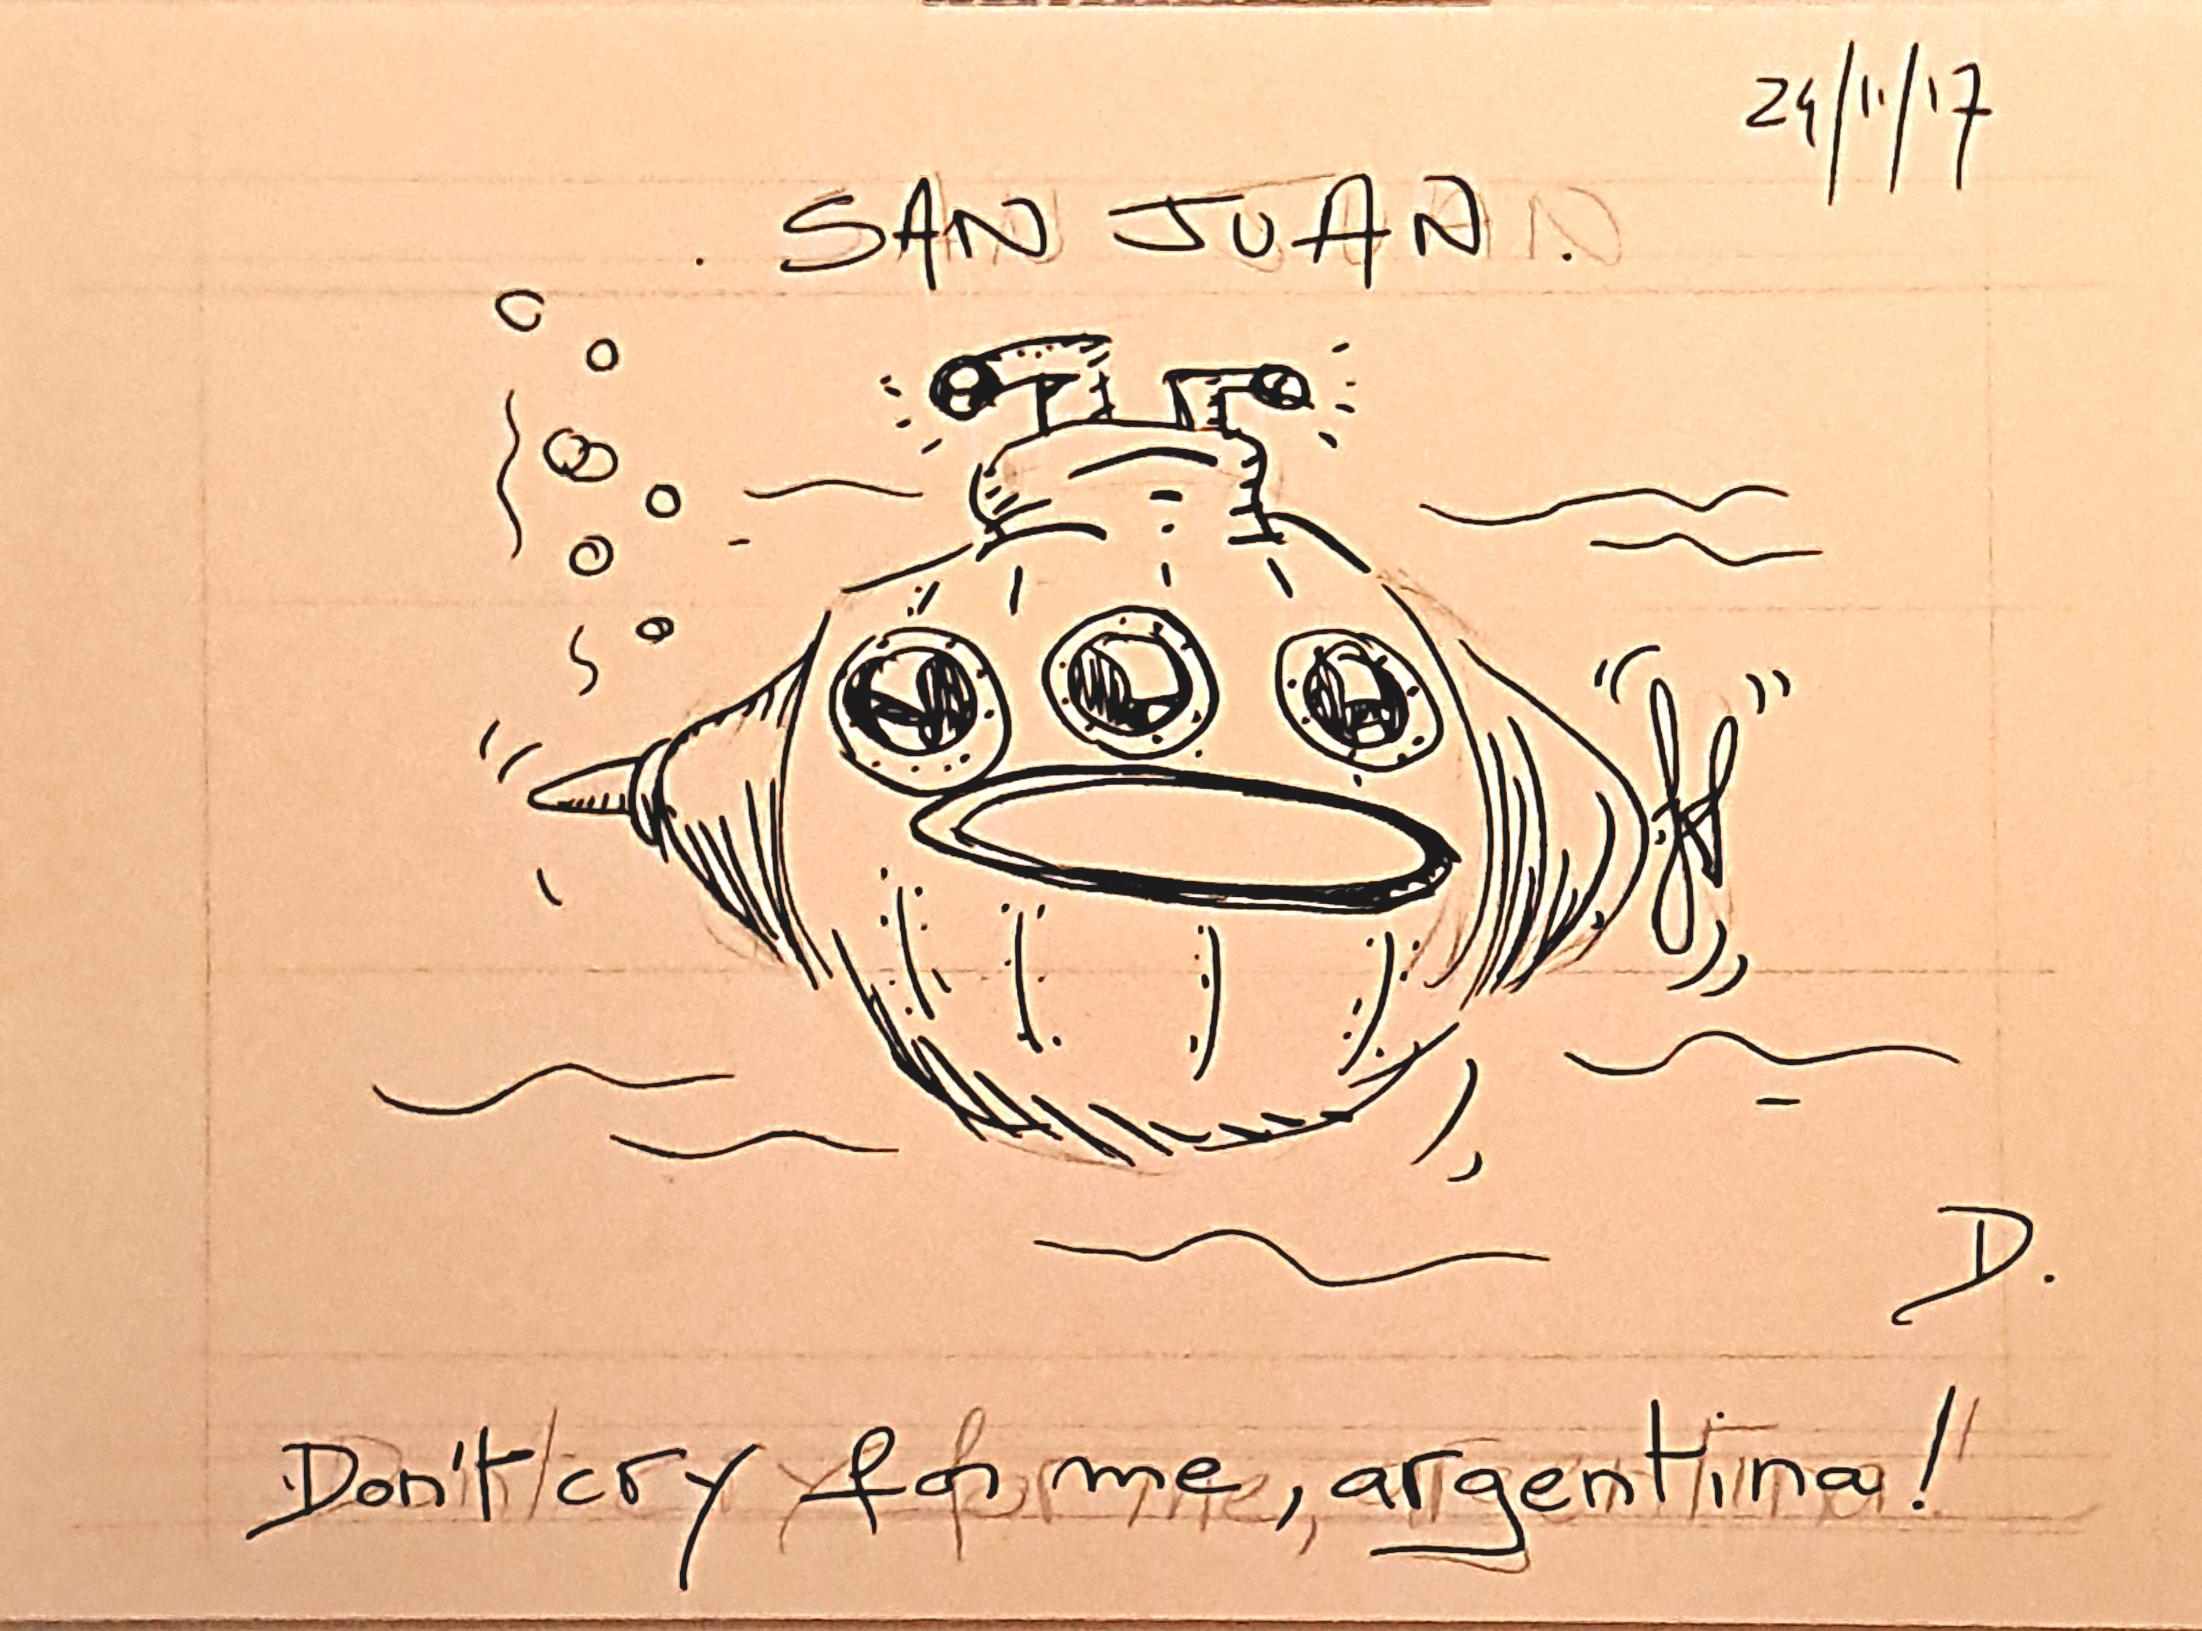 24/11/17
. SAN JUAN .
D.
Don't cry for me, argentina !